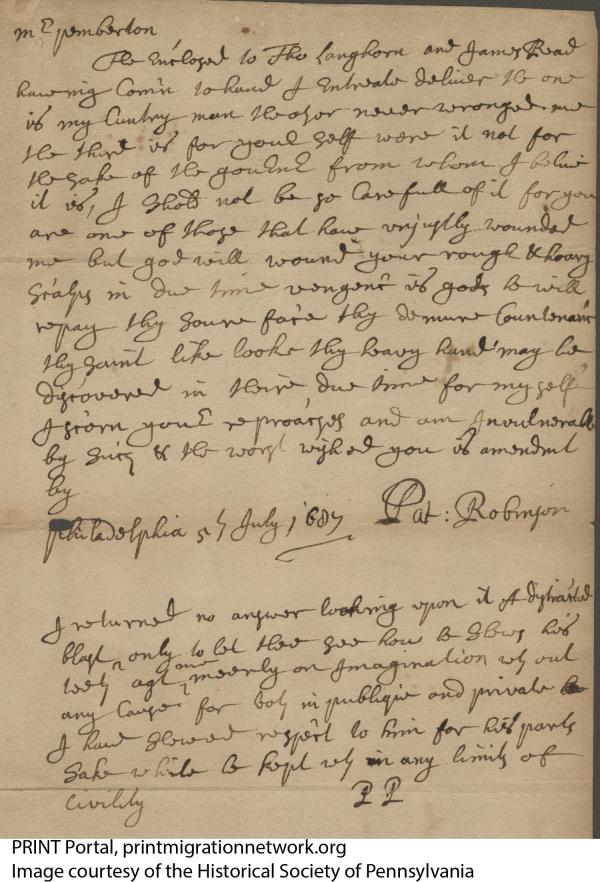 mr pemberton
The Enclosed to Tho Langhorn and James Read
haveing Com'n to hand I Entreate deliver the one
is my Cuntry man the other never wronged me
the third is for your self were it not for
the sake of the from whom I belive
it is, I shod not be so Carefull of it for you
are one of those that have unjustly wounded
me but god will wound your rough & hoary
scalps in due time vengenc is gods he will
repay thy soure face thy demure Countenanc
thy saint like looks thy heavy hand may be
discovered in theire due time for my self
I scorn your reproaches and am Invulnerable
by such & the worst wished you is amendmt
by
philadelphia 5th July 1687 Pat: Robinson
I returned no answer looking upon it A distracted
blast only to let thee see how he shews his
teeth agt me meerly on Imagination wth out
any Cause for both in publique and private
I have shewed respect to him for his parts
sake while he kept wth in any limits of
Civility PP
PRINT Portal, printmigrationnetwork.org
Image courtesy of the Historical Society of Pennsylvania